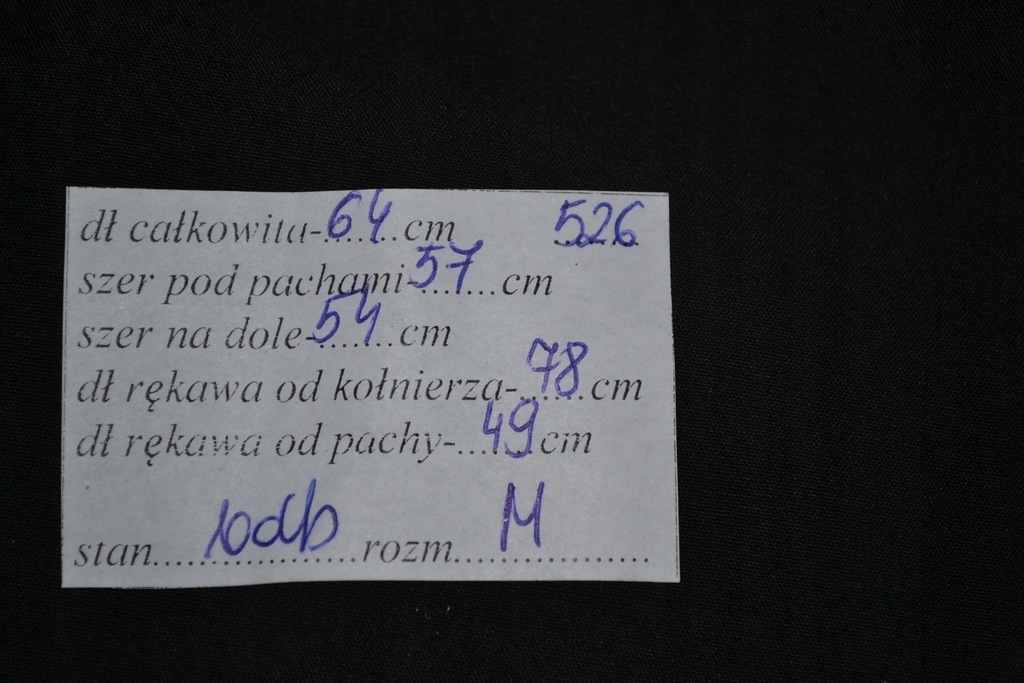 dł całkowita-64 cm 526
szer pod pachami-57 cm
szer na dole-54 cm
dł rękawa od kołnierza-78 cm
dł rękawa od pachy-49 cm
stan rozm M